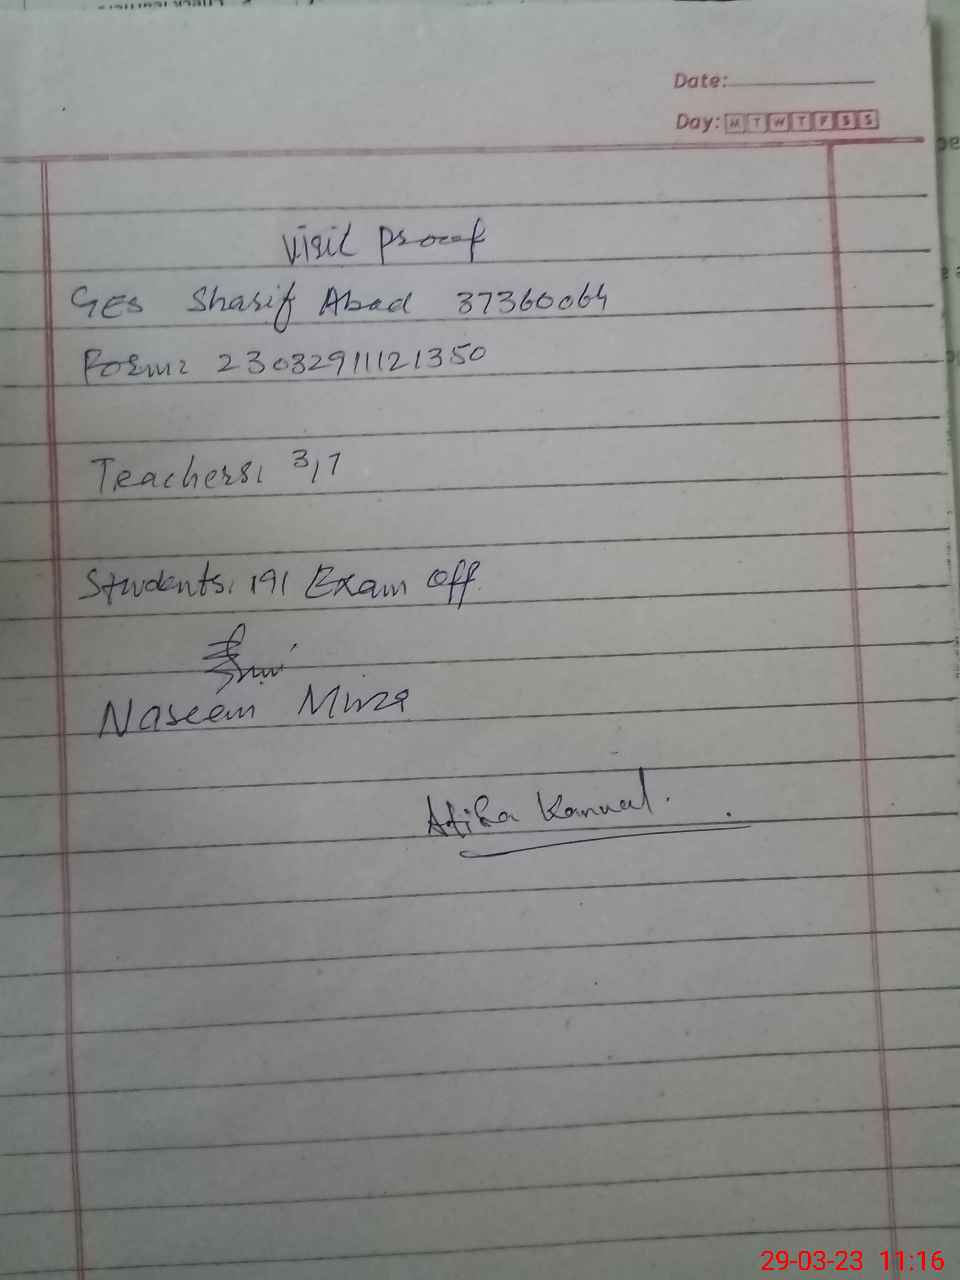 Date:
Day: M T W T F S S
Visit Proof
GES Sharif Abad 37360064
Form: 23032911121350
Teachers: 3,7
Students: 191 Exam Off
Naseem Mirza
Atika Kanwal.
29-03-23 11:16